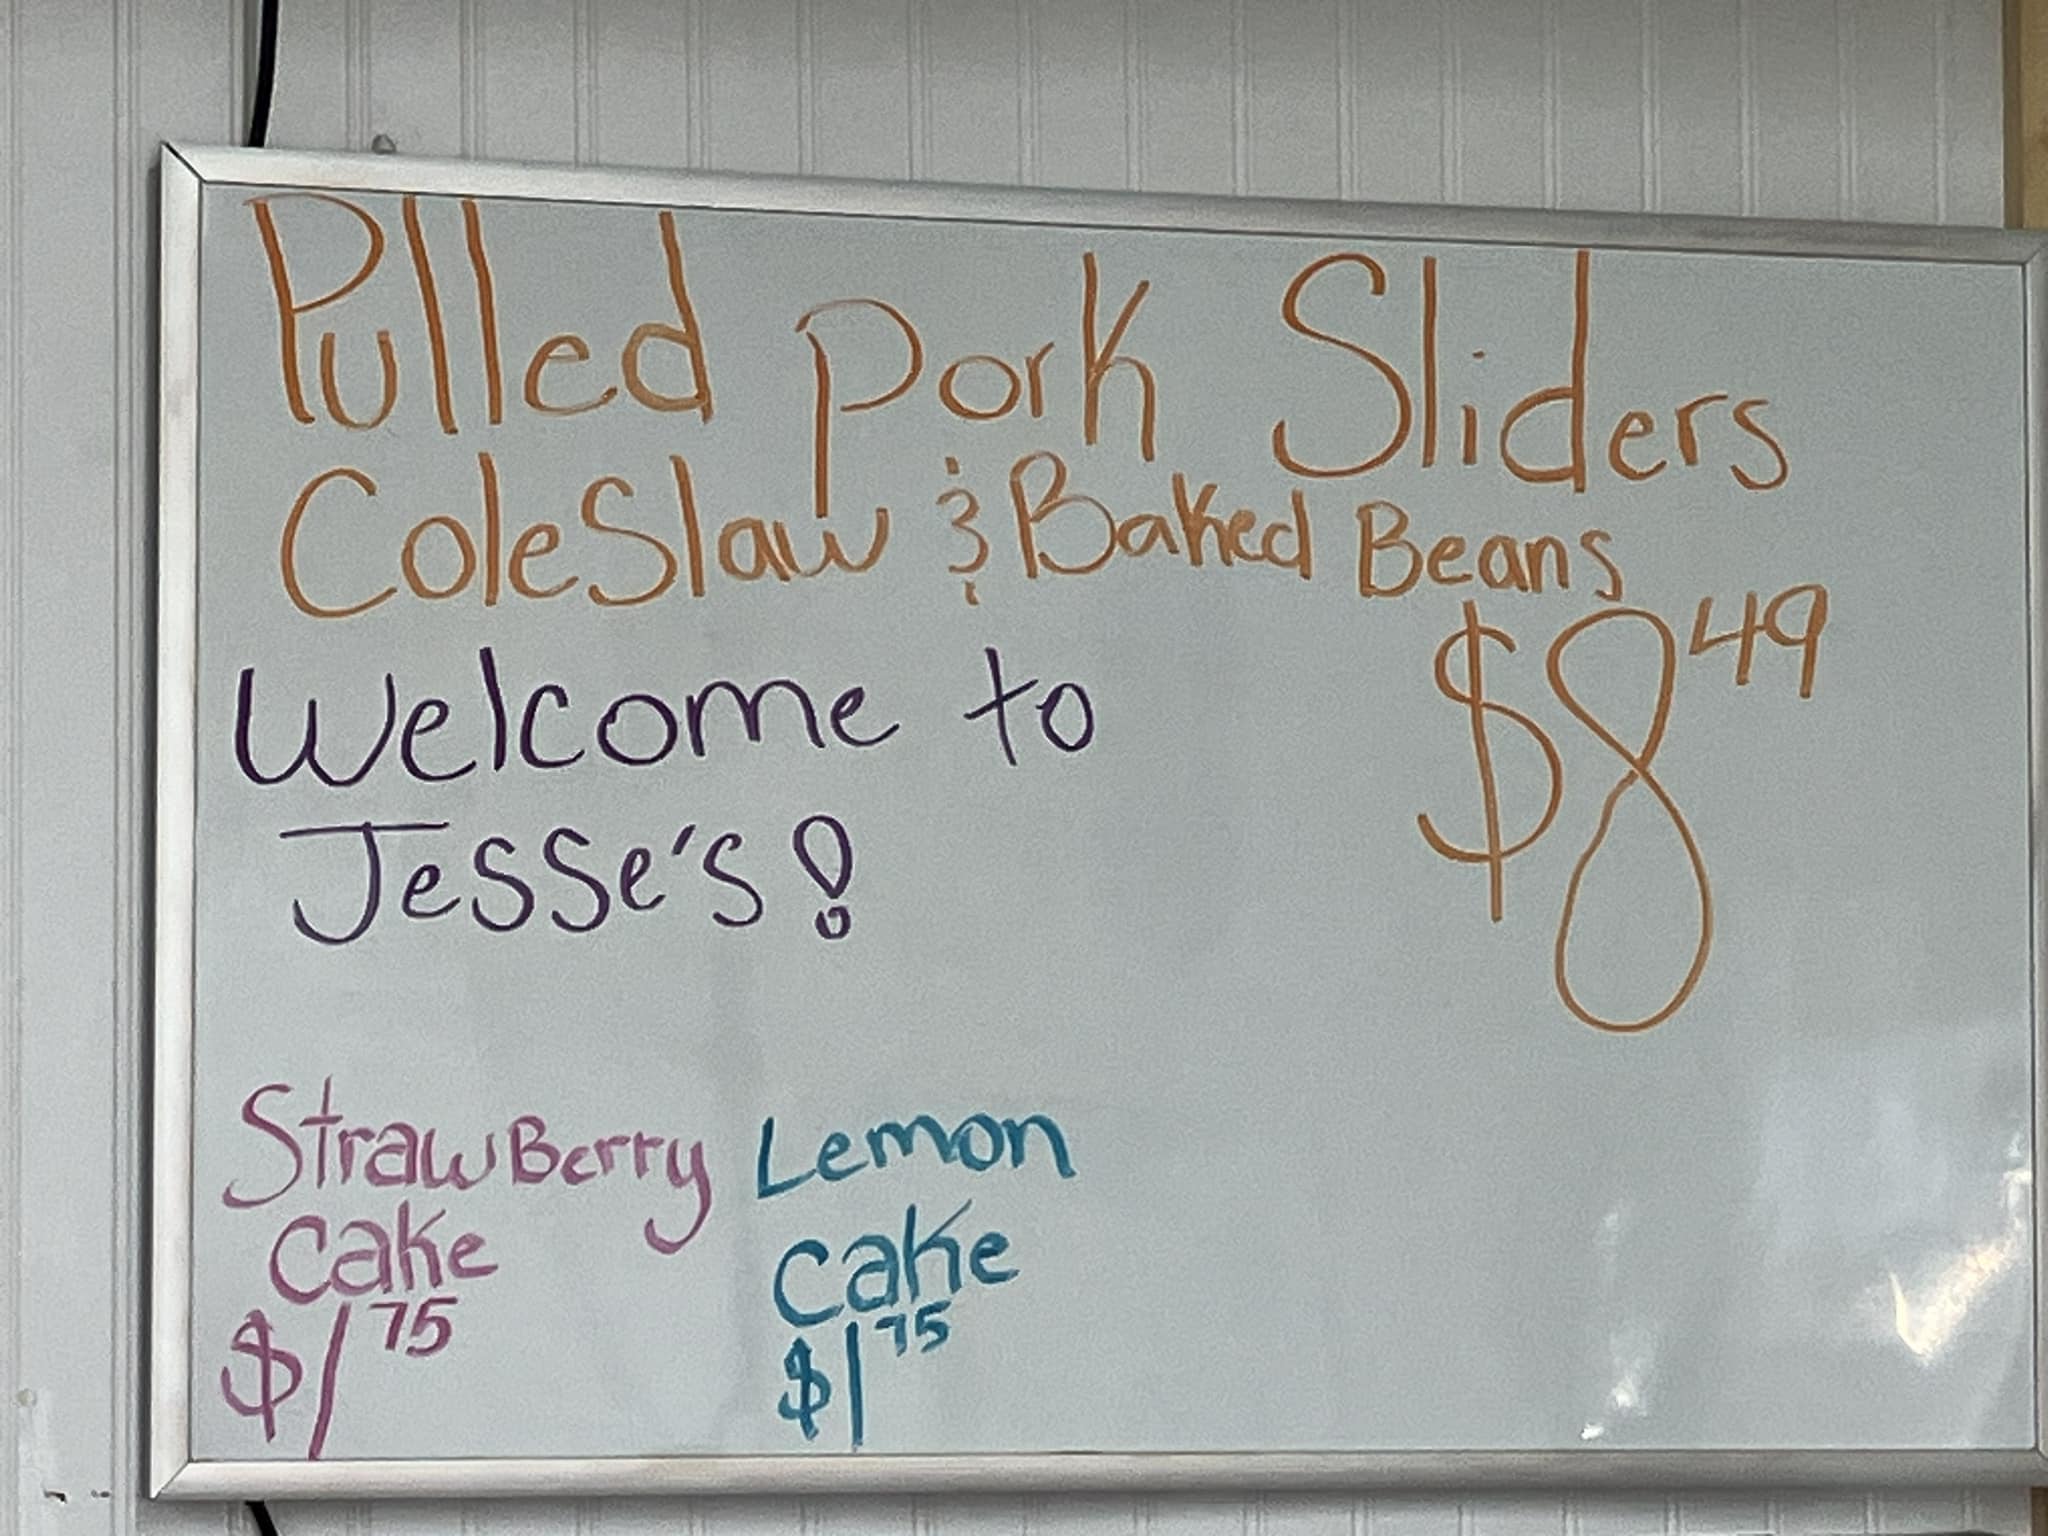 Pulled Pork Sliders
ColeSlaw & Baked Beans
$8.49
Welcome to
Jesse's!
StrawBerry
Cake
$1.75
Lemon
Cake
$1.75